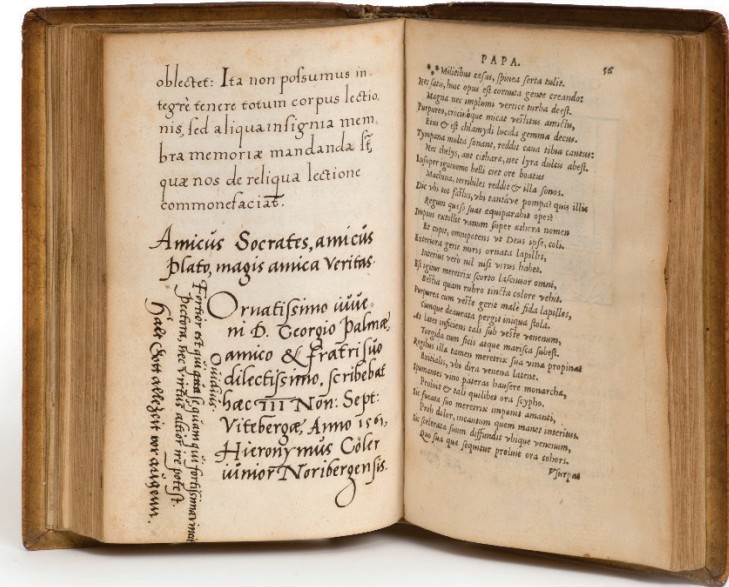 oblectet: Ita non poſsumus in
tegrè tenere totum corpus lectio
nis, ſed aliqua inſignia mem
bra memoriæ mandanda ſt,
quæ nos de reliqua lectione
commonefaciāt.
Amicùs Socrates, amicùs
Plato, magis amica Veritas.
Ornatiſsimo iuue-
ni D. Georgio Palmæ,
amico & fratri ſuo
dilectiſsimo, ſcribebat
hæc III Non: Sept:
Vitebergæ, Anno 1561,
Hieronymus Cöler
iunior Noribergenſis.
Fortior eſt qui ſe, quam qui fortiſsima
Pectora, nec virtus altior ire poteſt.
Ouidius.
Halt Gott allezeit vor augenn.
PAPA. 56
Militibus caſus, ſpinea ſerta tulit.
Nec ſatis, huic opus eſt cornuta gente creando:
Magna nec implumi vertice turba deeſt.
Purpureo, micat veſtitus amictu,
Eius & eſt chlamydi lucida gemma decus.
Tympana multa ſonant, reddit caua tibia cantus:
Nec chelys, aut cithara, nec lyra dulcis abeſt.
Inſuper igniuomo belli ciet ore boatus
Machina, terribiles reddit & illa ſonos.
Dic vbi tot faſtus, vbi tantæve pompæ? quis illis
Regum queſo ſuas equiparabit opes?
Impius extollit vanum ſuper æthera nomen
Et cupit, omnipotens vt Deus ipſe, coli.
Exteriora gerit miris ornata lapillis,
Interius vero nil niſi virus habet.
Eſt igitur meretrix ſcorto laſciuior omni,
Beſtia quam rubro tincta colore vehit.
Purpurea cum veſte gerit male fida lapillos,
Cumque deaurata pergit iniqua ſtola.
At latet inficiens tali ſub veſte venenum,
Turgida cum ficis atque mariſca ſubeſt.
Regibus illa tamen meretrix ſua vina propinat
vbi dira venena latent.
Spumantes vino pateras hauſere monarchæ,
Proluit & tali quilibet ora ſcypho.
Sic fucata ſuo meretrix imponit amanti,
Proh dolor, incautum quem manet interitus.
Sic ſcelerata ſuum diffundit vbique venenum,
Quo ſua que ſequitur proluit ora cohors.
Vſurpat